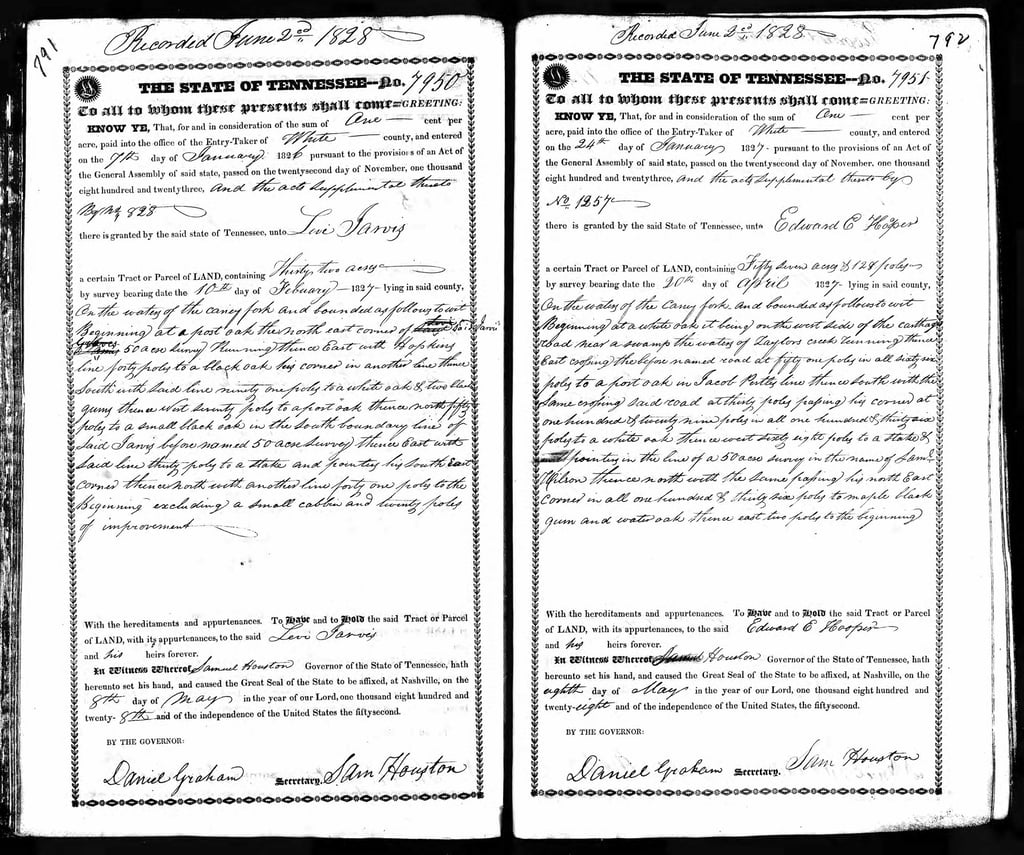 791
Recorded June 2nd 1828
THE STATE OF TENNESSEE--No. 7950
To all to whom these presents shall come=GREETING:
KNOW YE, That, for and in consideration of the sum of One cent per
acre, paid into the office of the Entry-Taker of White county, and entered
on the 7th day of January 1826 pursuant to the provisions of an Act of
the General Assembly of said state, passed on the twentysecond day of November, one thousand
eight hundred and twentythree, and the acts supplemental thereto
By No 828
there is granted by the said state of Tennessee, unto Levi Jarvis
a certain Tract or Parcel of LAND, containing Thirty two acres
by survey bearing date the 10th day of Febuary 1827 lying in said county,
On the waters of the caney fork and bounded as follows to wit
Beginning at a post oak the north east corner of Jarvis
50 acre survey Running thence East with Hopkins
line forty poles to a black oak his corner in another line thence
South with said line ninety one poles to a white oak & two black
gums thence west seventy poles to a post oak thence north fifty
poles to a small black oak in the south boundary line of
said Jarvis before named 50 acre survey thence East with
said line thirty poles to a stake and pointers his South East
corner thence north with another line forty one poles to the
Beginning excluding a small cabbin and twenty poles
of improvement
With the hereditaments and appurtenances. To Have and to Hold the said Tract or Parcel
of LAND, with its appurtenances, to the said Levi Jarvis
and his heirs forever.
In Witness Whereof, Samuel Houston Governor of the State of Tennessee, hath
hereunto set his hand, and caused the Great Seal of the State to be affixed, at Nashville, on the
8th day of May in the year of our Lord, one thousand eight hundred and
twenty-8th and of the independence of the United States the fiftysecond.
BY THE GOVERNOR:
Daniel Graham Secretary. Sam Houston
792
Recorded June 2nd 1828
THE STATE OF TENNESSEE--No. 7951
To all to whom these presents shall come=GREETING:
KNOW YE, That, for and in consideration of the sum of One cent per
acre, paid into the office of the Entry-Taker of White county, and entered
on the 24th day of January 1827 pursuant to the provisions of an Act of
the General Assembly of said state, passed on the twentysecond day of November, one thousand
eight hundred and twentythree, and the acts supplemental thereto by
No 1257
there is granted by the said state of Tennessee, unto Edward E Hooper
a certain Tract or Parcel of LAND, containing Fifty seven acres & 128 poles
by survey bearing date the 20th day of april 1827 lying in said county,
On the waters of the Caney fork and bounded as follows to wit
Beginning at a white oak it being on the west side of the carthage
road near a swamp the waters of Taylors creek Running thence
East crossing the before named road at fifty one poles in all sixty six
poles to a post oak in Jacob line thence south with the
same crossing said road at thirty poles passing his corner at
one hundred & twenty nine poles in all one hundred & thirty six
poles to a white oak thence west sixty eight poles to a stake &
pointers in the line of a 50 acre survey in the name of Saml
Wilson thence north with the same passing his north East
corner in all one hundred & thirty six poles to maple black
gum and water oak thence east two poles to the beginning
With the hereditaments and appurtenances. To Have and to Hold the said Tract or Parcel
of LAND, with its appurtenances, to the said Edward E Hooper
and his heirs forever.
In Witness Whereof, Samuel Houston Governor of the State of Tennessee, hath
hereunto set his hand, and caused the Great Seal of the State to be affixed, at Nashville, on the
eighth day of May in the year of our Lord, one thousand eight hundred and
twenty-eight and of the independence of the United States, the fiftysecond.
BY THE GOVERNOR:
Daniel Graham Secretary. Sam Houston